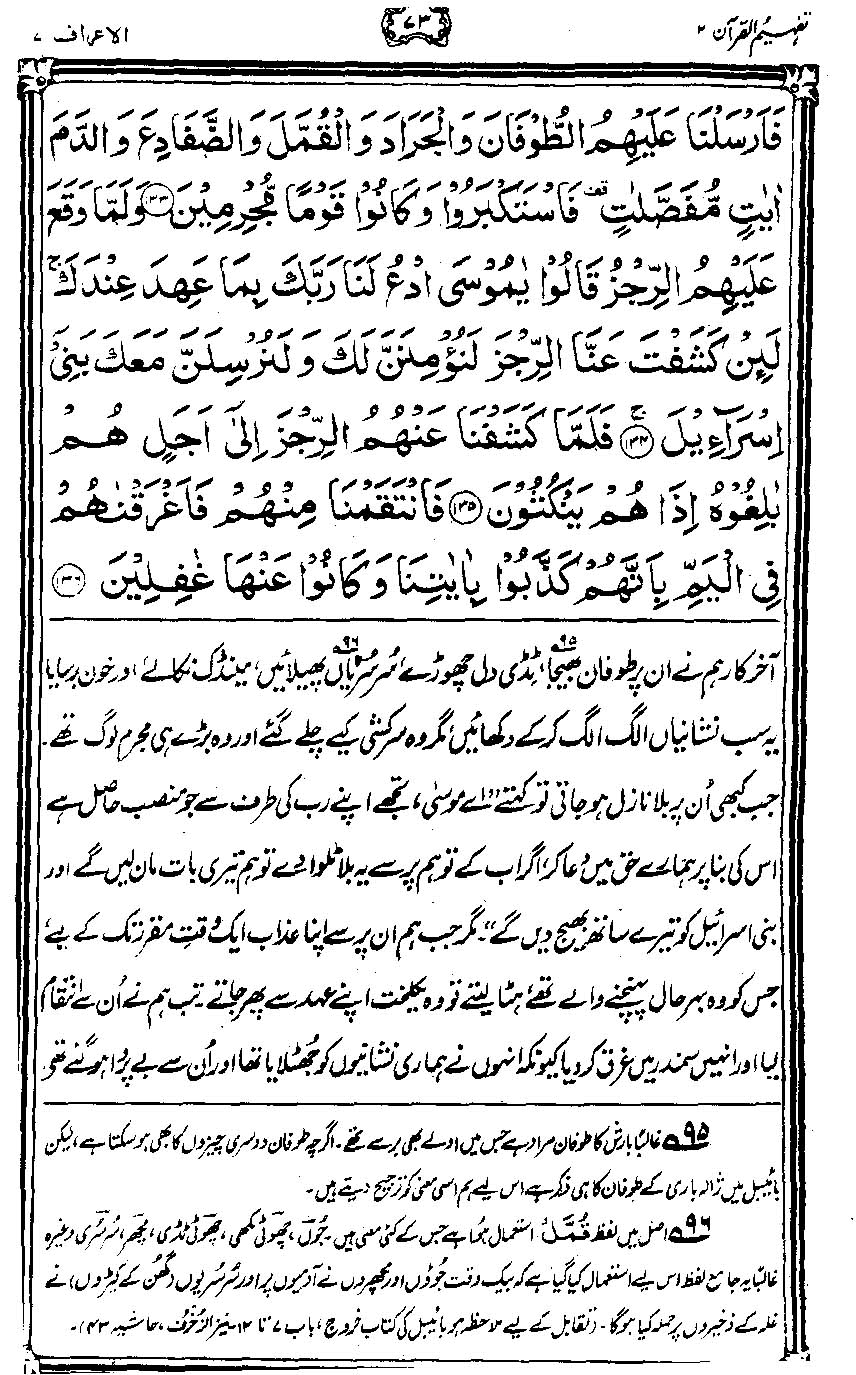 تفہیم القرآن ۲
۷۳
الاعراف ۷
فَاَرْسَلْنَا عَلَيْهِمُ الطُّوْفَانَ وَالْجَرَادَ وَالْقُمَّلَ وَالضَّفَادِعَ وَالدَّمَ
اٰيٰتٍ مُّفَصَّلٰتٍ ۫ فَاسْتَكْبَرُوْا وَكَانُوْا قَوْمًا مُّجْرِمِيْنَ ﴿۱۳۳﴾ وَلَمَّا وَقَعَ
عَلَيْهِمُ الرِّجْزُ قَالُوْا يٰمُوْسَى ادْعُ لَنَا رَبَّكَ بِمَا عَهِدَ عِنْدَكَ ۚ
لَئِنْ كَشَفْتَ عَنَّا الرِّجْزَ لَنُؤْمِنَنَّ لَكَ وَلَنُرْسِلَنَّ مَعَكَ بَنِيْٓ
اِسْرَآءِيْلَ ۚ﴿۱۳۴﴾ فَلَمَّا كَشَفْنَا عَنْهُمُ الرِّجْزَ اِلٰٓى اَجَلٍ هُمْ
بٰلِغُوْهُ اِذَا هُمْ يَنْكُثُوْنَ ﴿۱۳۵﴾ فَانْتَقَمْنَا مِنْهُمْ فَاَغْرَقْنٰهُمْ
فِى الْيَمِّ بِاَنَّهُمْ كَذَّبُوْا بِاٰيٰتِنَا وَكَانُوْا عَنْهَا غٰفِلِيْنَ ﴿۱۳۶﴾
آخر کار ہم نے ان پر طوفان بھیجا،۹۵ ٹڈی دل چھوڑے، سُرسُریاں۹۶ پھیلائیں، مینڈک نکالے، اور خون برسایا
یہ سب نشانیاں الگ الگ کر کے دکھائیں، مگر وہ سرکشی کیے چلے گئے اور وہ بڑے ہی مجرم لوگ تھے۔
جب کبھی اُن پر بلا نازل ہو جاتی تو کہتے ”اے موسیٰ، تجھے اپنے رب کی طرف سے جو منصب حاصل ہے
اس کی بنا پر ہمارے حق میں دُعا کر، اگر اب کے تو ہم پر سے یہ بلا ٹلوا دے تو ہم تیری بات مان لیں گے اور
بنی اسرائیل کو تیرے ساتھ بھیج دیں گے“۔ مگر جب ہم ان پر سے اپنا عذاب ایک وقتِ مقرر تک کے لیے
جس کو وہ بہرحال پہنچنے والے تھے، ہٹا لیتے تو وہ یکلخت اپنے عہد سے پھر جاتے۔ تب ہم نے اُن سے انتقام
لیا اور انہیں سمندر میں غرق کر دیا کیونکہ انہوں نے ہماری نشانیوں کو جُھٹلایا تھا اور اُن سے بے پروا ہو گئے تھے
۹۵ غالباً بارش کا طوفان مراد ہے جس میں اولے بھی برسے تھے۔ اگرچہ طوفان دوسری چیزوں کا بھی ہو سکتا ہے، لیکن
بائیبل میں ژالہ باری کے طوفان کا ہی ذکر ہے اس لیے ہم اسی معنی کو ترجیح دیتے ہیں۔
۹۶ اصل میں لفظ قُمَّل استعمال ہوا ہے جس کے کئی معنی ہیں۔ جُوں، چھوٹی مکھی، چھوٹی ٹڈی، مچھر، سُرسُری وغیرہ
غالباً یہ جامع لفظ اس لیے استعمال کیا گیا ہے کہ بیک وقت جُوؤں اور مچھروں نے آدمیوں پر اور سُرسُریوں (گُھن کے کیڑوں) نے
غلہ کے ذخیروں پر حملہ کیا ہوگا۔ (تقابل کے لیے ملاحظہ ہو بائیبل کی کتاب خروج، باب ۷ تا ۱۲۔ نیز الزُّخْرُف، حاشیہ ۴۳)۔